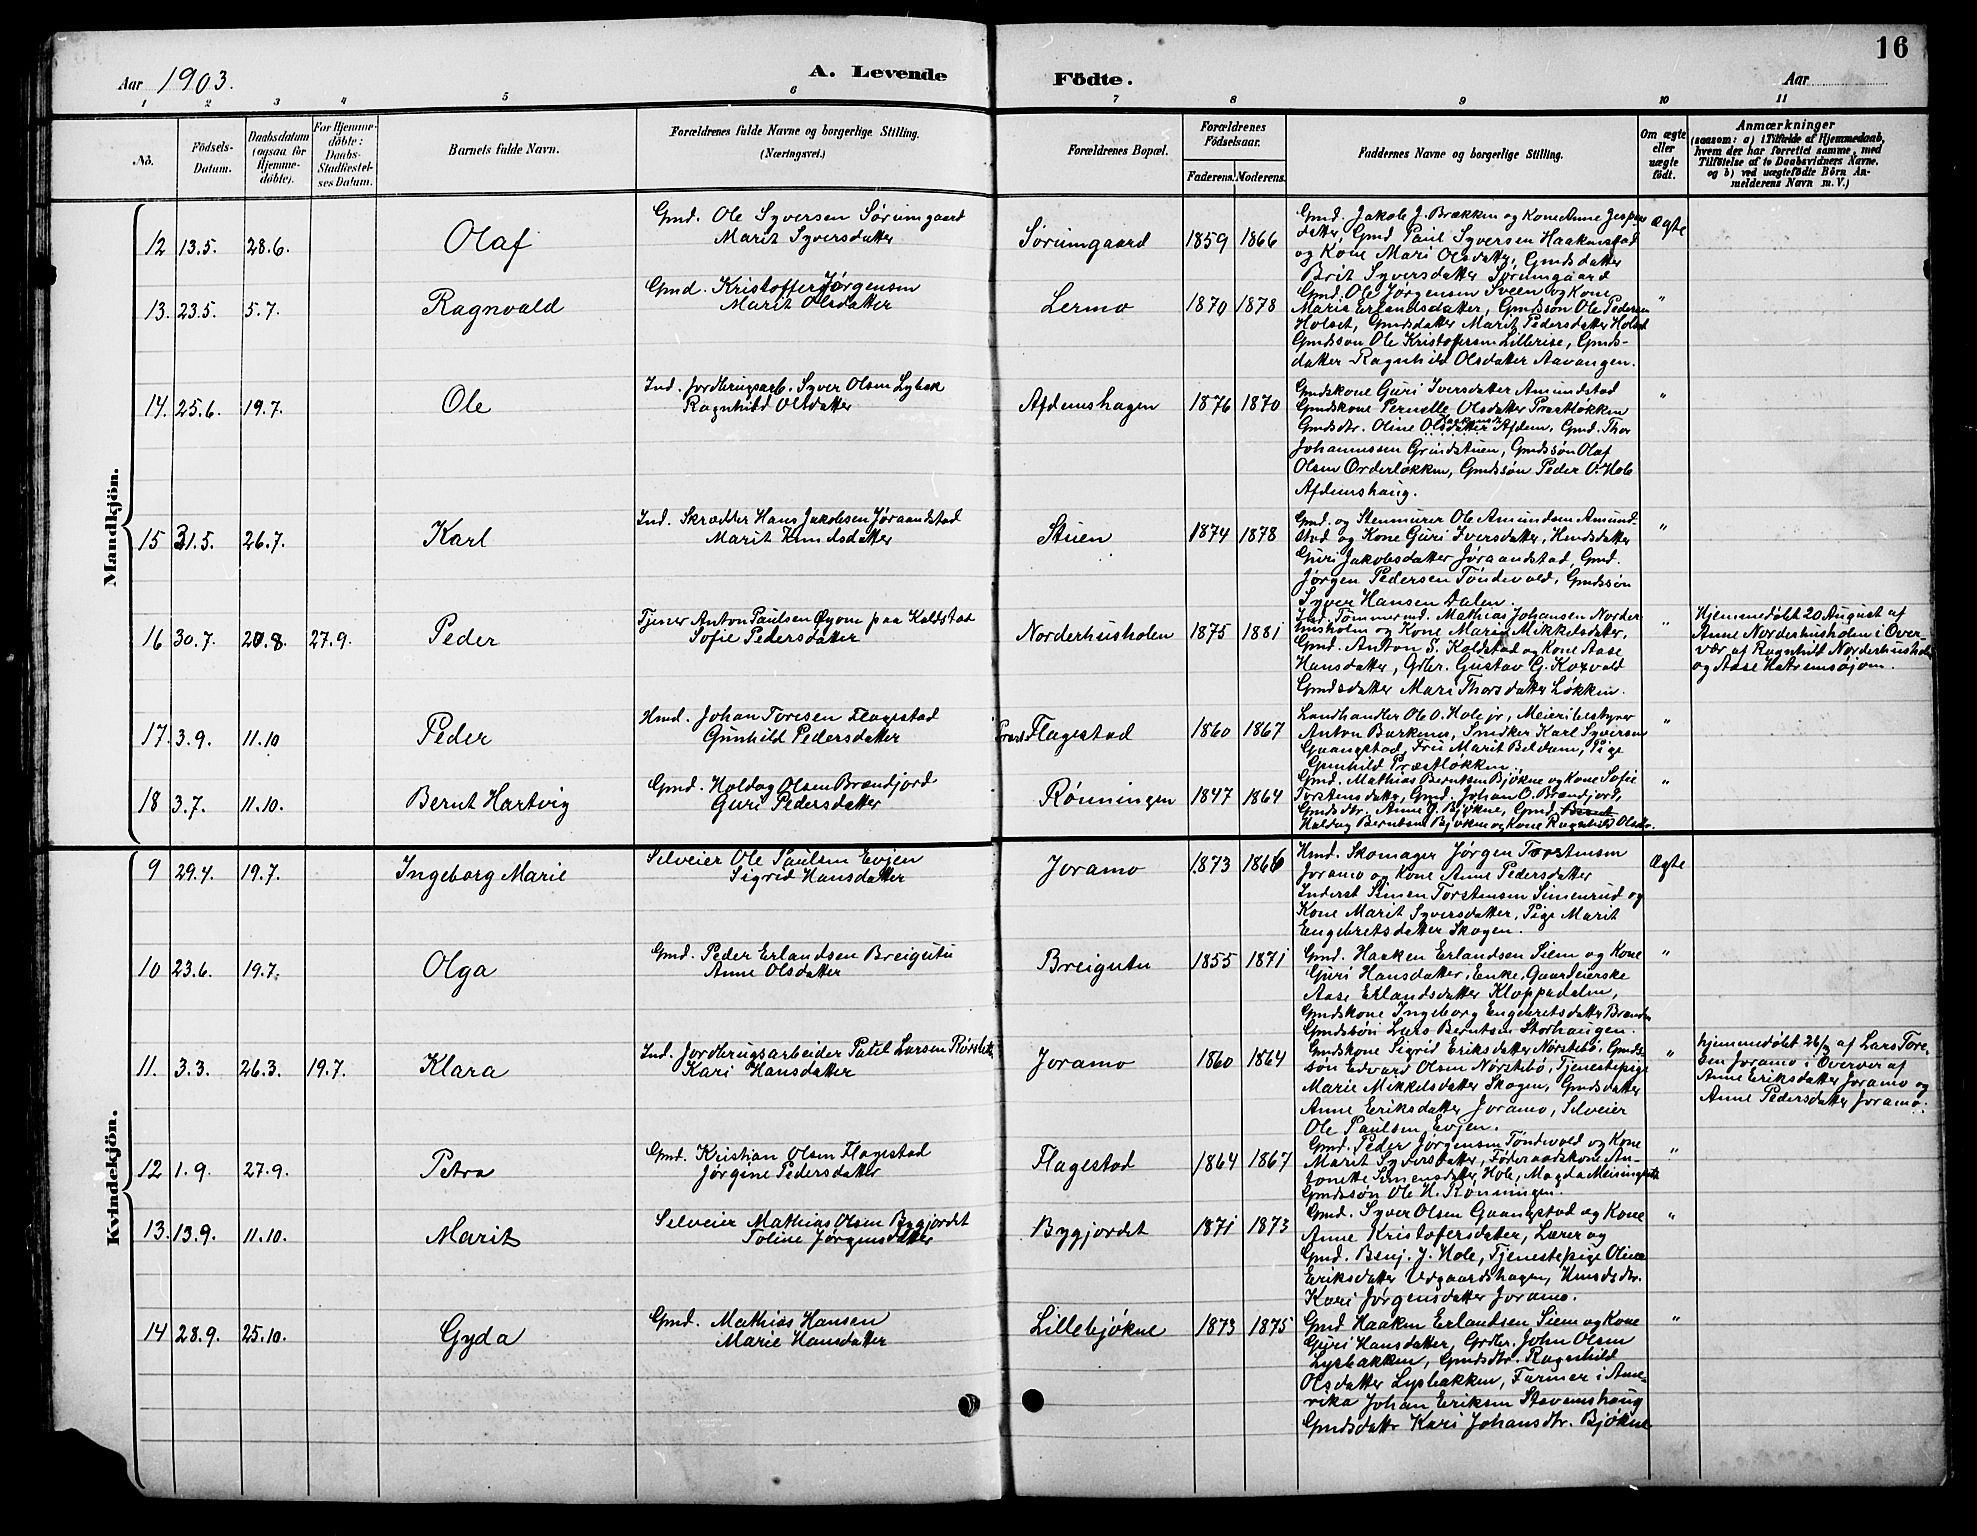 16
Aar 1903.
A. Levende Födte.
Aar
1 2 3 4 5 6 7 8 9 10 11
No.
Födsels-Datum.
Daabsdatum (ogsaa for Hjemme-döbte).
For Hjemme-döbte: Daabs-Stadfæstel-ses Datum.
Barnets fulde Navn.
Forældrenes fulde Navne og borgerlige Stilling. (Næringsvei.)
Forældrenes Bopæl.
Forældrenes Födselsaar.
Faderens. Moderens.
Faddernes Navne og borgerlige Stilling.
Om ægte eller uægte födt.
Anmærkninger
(saasom: a) i Tilfælde af Hjemmedaab,
hvem der har forrettet samme, med
Tilföielse af to Daabsvidners Navne,
og b) ved uægtefödte Börn An-
melderens Navn m. V.)
Mandkjön.
12 13.5. 28.6. Olaf
Gmd. Ole Syversen Sørumgaard
Marit Syversdatter
Sørumgaard 1859 1866
Gmd. Jakob J. Brækken og Kone Anne Jespers
datter, Gmd Paul Syversen Haakenstad
og Kone Mari Olsdatter, Gmdsdatter
Brit Syversdatter Sørumgaard
Ægte
13. 23.5. 5.7. Ragnvald
Gmd. Kristoffer Jørgensen
Marit Olsdatter
Lermo 1870 1878
Gmd. Ole Jørgensen Sveen og Kone
Marie Erlandsdatter, Gmdssøn Ole Pedersen
Holset, Gmdsdatter Marit Pedersdatter Holset
Gmdssøn Ole Kristofersen Lillerise, Gmds-
datter Ragnhild Olsdatter Aavangen.
"
14. 25.6. 19.7. Ole
Ind. Jordbrugsarb. Syver Olsen Lybæk
Ragnhild Olsdatter
Afdemshagen 1876 1870
Gmdskone Guri Iversdatter Amundstad
Gmdskone Pernelle Olsdatter Præstløkken
Gmdsdtr. Oline Olsdatter Afdem, Gmd. Thor
Johannessen Grindstuen, Gmdssøn Olaf
Olsen Orderløkken, Gmdssøn Peder O. Hole
Afdemshaug.
"
15 31.5. 26.7. Karl
Ind. Skrædder Hans Jakobsen Jøraandstad
Marit Knudsdatter
Stuen 1874 1878
Gmd. og Stenmurer Ole Amundsen Amund-
stad og Kone Guri Iversdatter, Hmdsdatter
Guri Jakobsdatter Jøraandstad, Gmd.
Jørgen Pedersen Töndevold, Gmdssøn
Syver Hansen Dalen.
"
16 30.7. 20.8. 27.9. Peder
Tjener Anton Paulsen Øyom paa Koldstad
Sofie Pedersdatter
Norderhusholen 1875 1881
Ind. Tømmermd. Mathias Johansen Norder
husholen og Kone Marie Mikkelsdatter,
Gmd. Anton S. Koldstad og Kone Aase
Hansdatter, Grbr. Gustav G. Koxvold
Gmdsdatter Mari Thorsdatter Løkken.
"
Hjemmedøbt 20 August af
Anne Norderhusholen i Over-
vær af Ragnhild Norderhusholen
og Aase Katrinsøjom.
17. 3.9. 11.10 Peder
Hmd. Johan Toresen Flagestad
Gunhild Pedersdatter
Flagestad 1860 1867
Landhandler Ole O. Hole jr, Meieribestyrer
Anton Barkenæs, Snedker Karl Syversen
Gaangstad, Fru Marit Beldom, Pige
Gunhild Præstløkken.
"
18 3.7. 11.10. Bernt Hartvig
Gmd. Holdog Olsen Brandjord
Guri Pedersdatter
Rönningen 1847 1864
Gmd. Mathias Berntsen Bjøkne og Kone Sofie
Torstensdatter, Gmd. Johan O. Brandjord,
Gmdsdtr. Anne J. Bjøkne, Gmd. Bernt
Haldog Berntsen Bjøkne og Kone Ragnhild Olsdr.
"
Kvindekjön.
9 29.4. 19.7. Ingeborg Marie
Selveier Ole Paulsen Evjen
Sigrid Hansdatter
Joramo 1873 1866
Hmd. Skomager Jørgen Torstensen
Joramo og Kone Anne Pedersdatter
Inderst Simen Torstensen Simenrud og
Kone Marit Syversdatter, Pige Marit
Engebretsdatter Skogen.
Ægte
10 23.6. 19.7. Olga
Gmd. Peder Erlandsen Breigutu
Anne Olsdatter
Breigutu 1855 1871
Gmd. Haaken Erlandsen Siem og Kone
Guri Hansdatter, Enke, Gaardeierske
Aase Erlandsdatter Kloppedalen,
Gmdskone Ingeborg Engebretsdatter Branden
Gmdssøn Lars Berntsen Storhaugen.
"
11. 3.3. 26.3. 19.7. Klara
Ind. Jordbrugsarbeider Paul Larsen Rørslet
Kari Hansdatter
Joramo 1860 1864
Gmdskone Sigrid Eriksdatter Nørstebö, Gmds-
søn Edvard Olsen Nørstebö, Tjenestepige
Marie Mikkelsdatter Skogen, Gmdsdatter
Anne Eriksdatter Joramo, Selveier
Ole Paulsen Evjen.
"
hjemmedøbt 26/3 af Lars Tore-
sen Joramo i Overvær af
Anne Eriksdatter Joramo og
Anne Pedersdatter Joramo.
12 1.9. 27.9. Petra
Gmd. Kristian Olsen Flagestad
Jørgine Pedersdatter
Flagestad 1864 1867
Gmd. Peder Jørgensen Töndevold og Kone
Marit Syversdatter, Føderaadskone An-
tonette Simensdatter Hole, Magda
Gmdssøn Ole H. Rønningen.
"
13. 13.9. 11.10. Marit
Selveier Mathias Olsen Bygjordet
Toline Jørgensdatter
Bygjordet 1871 1873
Gmd. Syver Olsen Gaangstad og Kone
Anne Kristofersdatter, Lærer og
Gmd. Benj. J. Hole, Tjenestepige Oline
Eriksdatter Udgaardshagen, Hmdsdtr.
Kari Jørgensdatter Joramo.
"
14 28.9. 25.10. Gyda
Gmd. Mathias Hansen
Marie Hansdatter
Lillebjøkne 1873 1875
Gmd Haaken Erlandsen Siem og Kone
Guri Hansdatter, Grdbr. John Olsen
Lysbakken, Gmdsdtr. Ragnhild
Olsdatter Lysbakken, Farmer i Ame-
rika Johan Eriksen Stavenshaug
Gmdsdattr Kari Johansdtr. Bjøkne
"